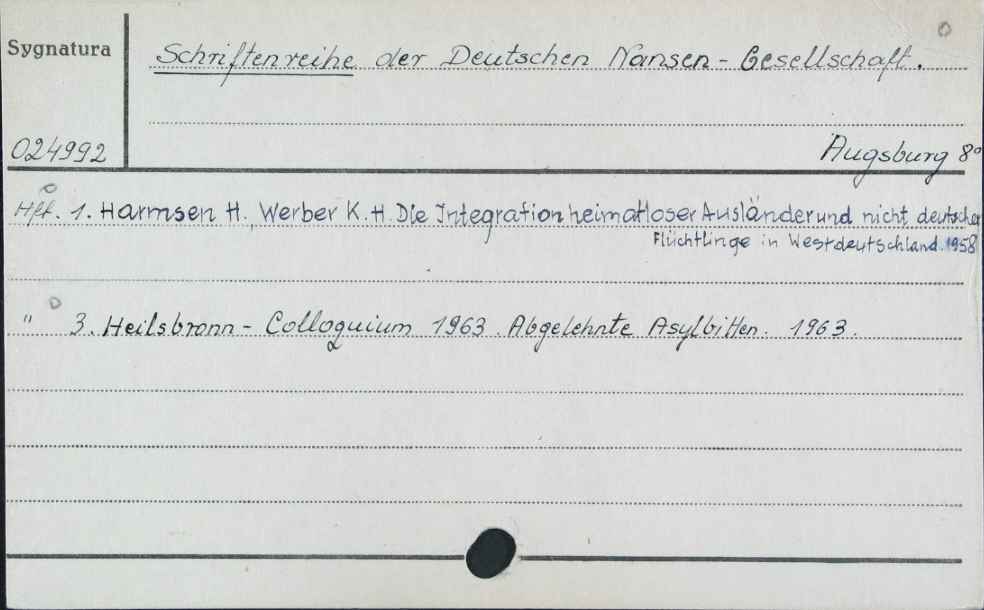 Sygnatura
Schriftenreihe der Deutschen Nansen-Gesellschaft.
024992
Augsburg 8°
Hft. 1. Harmsen H., Werber K. H. Die Integration heimatloser Ausländer und nicht deutscher
Flüchtlinge in Westdeutschland. 1958
" 3. Heilsbronn-Colloquium 1963. Abgelehnte Asylbitten. 1963.